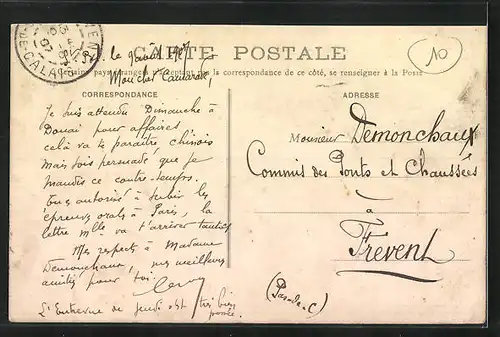 CARTE POSTALE
le 9 août 1907
Certains pays étrangers n'acceptant pas la correspondance de ce côté, se renseigner à la Poste
Mon cher Camarade,
CORRESPONDANCE
ADRESSE
10
Je suis attendu Dimanche à
Douai pour affaires
cela va te paraître chinois
mais sois persuadé que je
maudis ce contre-temps.
autorisé à subir les
épreuves orales à Paris, la
lettre mlle va t'arriver tantôt
Mes respects à Madame
Demonchaux, mes meilleures
amitiés pour toi.
L'Entrevue de jeudi est très bien
posée.
Monsieur Demonchaux
Commis des Ponts et Chaussées
à
Frévent
(Pas-de-C)
DE-CALAIS